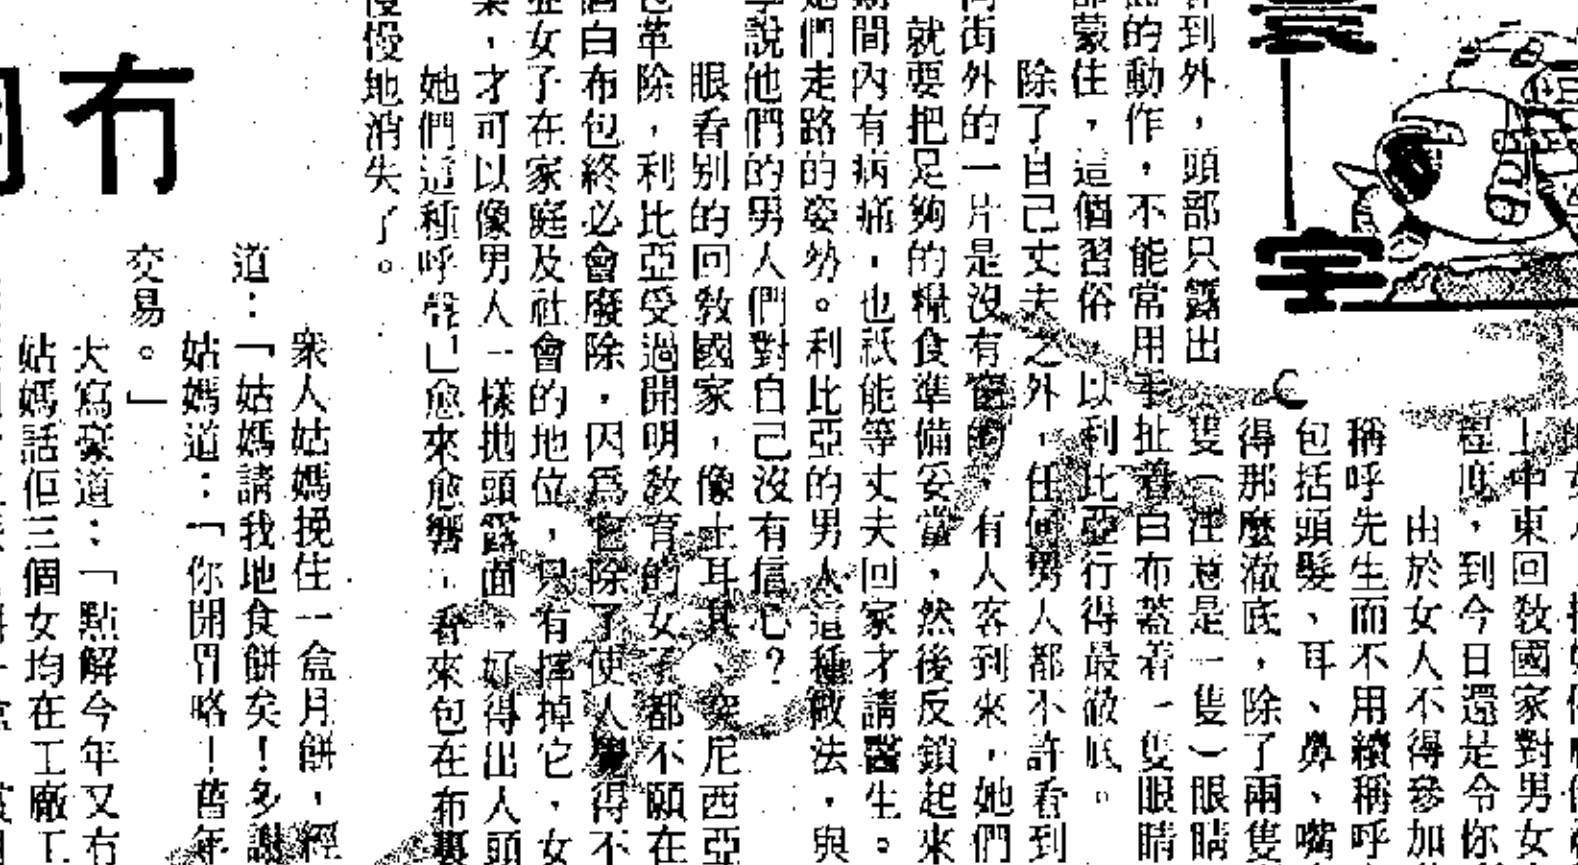 上中東回教國家對男女
程度，到今日還是令你
由於女人不得參加
稱呼先生而不用續稱呼
包括頭髮、耳、鼻、嘴
得那麼澈底，除了兩隻
到外，頭部只露出
隻（注意是一隻）眼睛
的動作，不能常用手扯着白布蓋着一隻眼睛
部蒙住，這個習俗，以利比亞行得最澈底。
除了自己丈夫之外，任何男人都不許看到
街外的一片是沒有窗的，有人客到來，她們
就要把足夠的糧食準備妥當，然後反鎖起來
期間內有病痛，也祇能等丈夫回家才請醫生。
她們走路的姿勢。利比亞的男人這種做法，與
說他們的男人們對自己沒有信心？
眼看別的回教國家，像土耳其、突尼西亞
革除，利比亞受過開明教育的女子都不願在
白布包終必會廢除，因爲它除了使人覺得不
女了在家庭及社會的地位，只有摔掉它，女
，才可以像男人一樣拋頭露面，好得出人頭
她們這種呼聲已愈來愈響，看來包在布裏
慢慢地消失了。
冇
衆人姑媽挽住一盒月餅，經
道：「姑媽請我地食餅矣！多謝
姑媽道：「你開胃咯！舊年
交易。」
大寫豪道：「點解今年又冇
姑媽話佢三個女均在工廠工